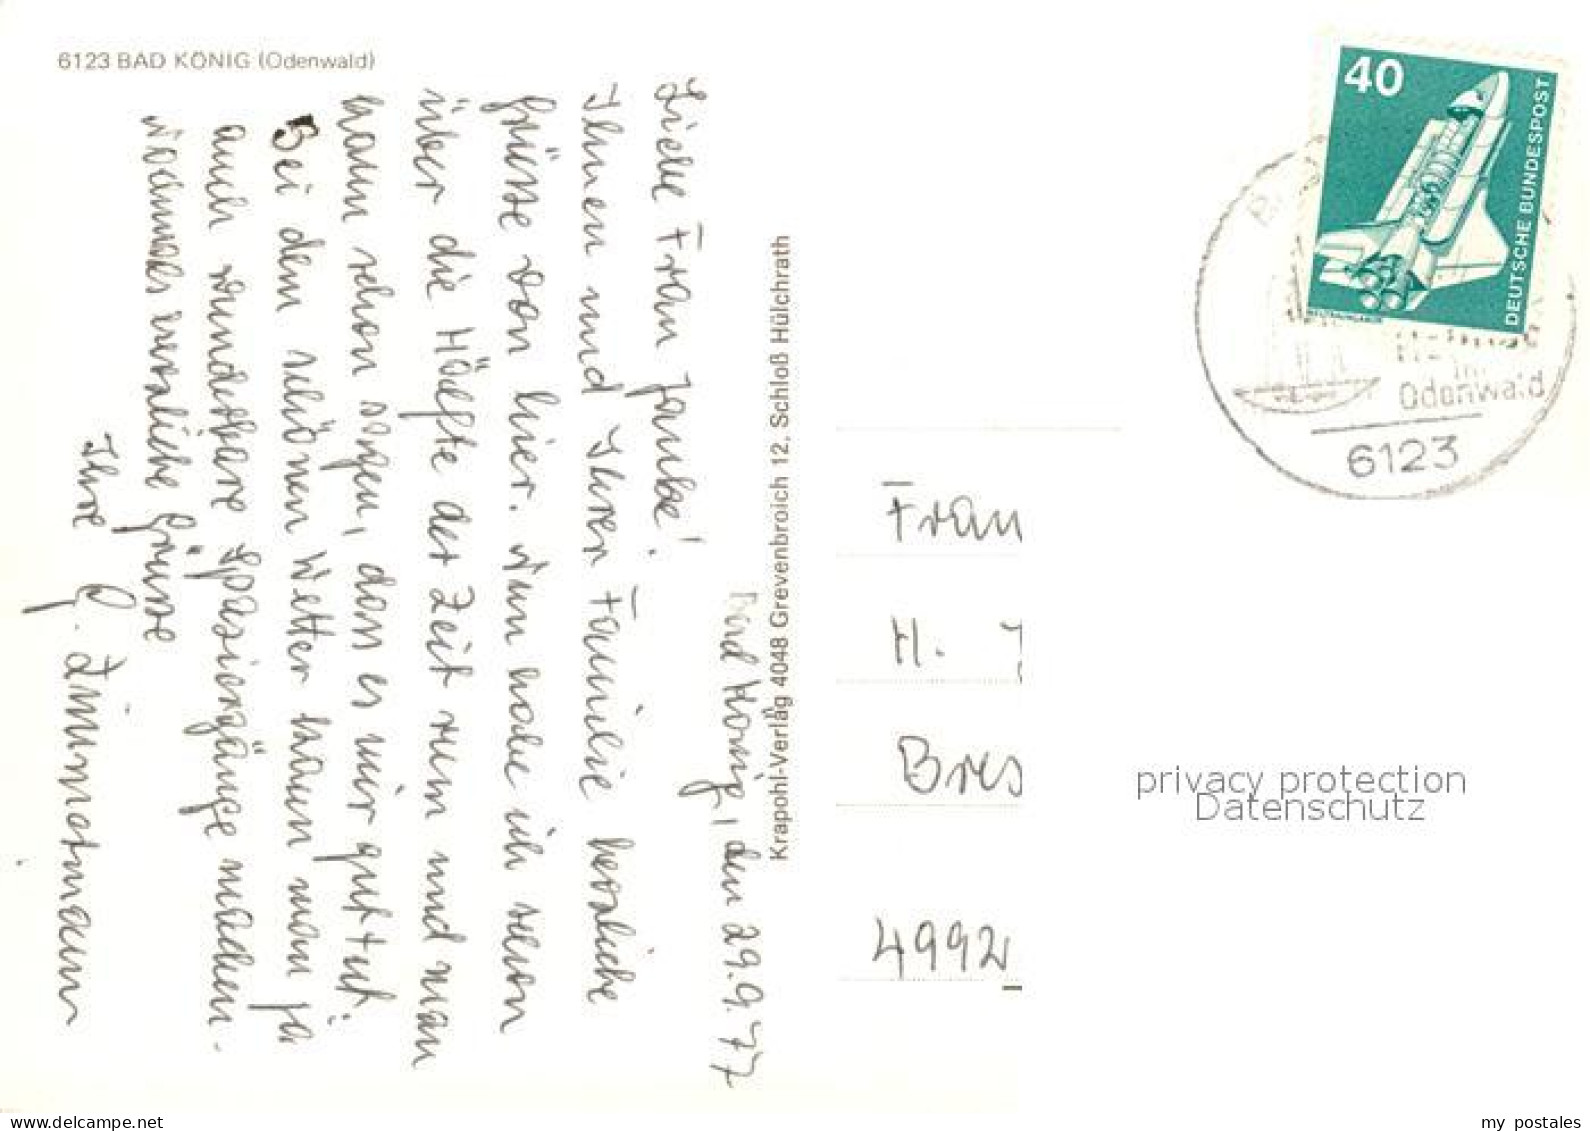 6123 BAD KÖNIG (Odenwald)
Bad König, den 29.9.77
Liebe Frau Janke!
Ihnen und Ihrer Familie herzliche
Grüsse von hier. Nun habe ich schon
über die Hälfte der Zeit rum und man
kann schon sagen, dass es mir gut tut.
Bei dem schönen Wetter kann man ja
auch wunderbare Spaziergänge machen.
Nochmals herzliche Grüsse
Ihre G. Zimmermann
Krapohl-Verlag 4048 Grevenbroich 12. Schloß Hülchrath
40
DEUTSCHE BUNDESPOST
Odenwald
6123
Frau
H.
Bres
4992
privacy protection
Datenschutz
www.delcampe.net
my_postales